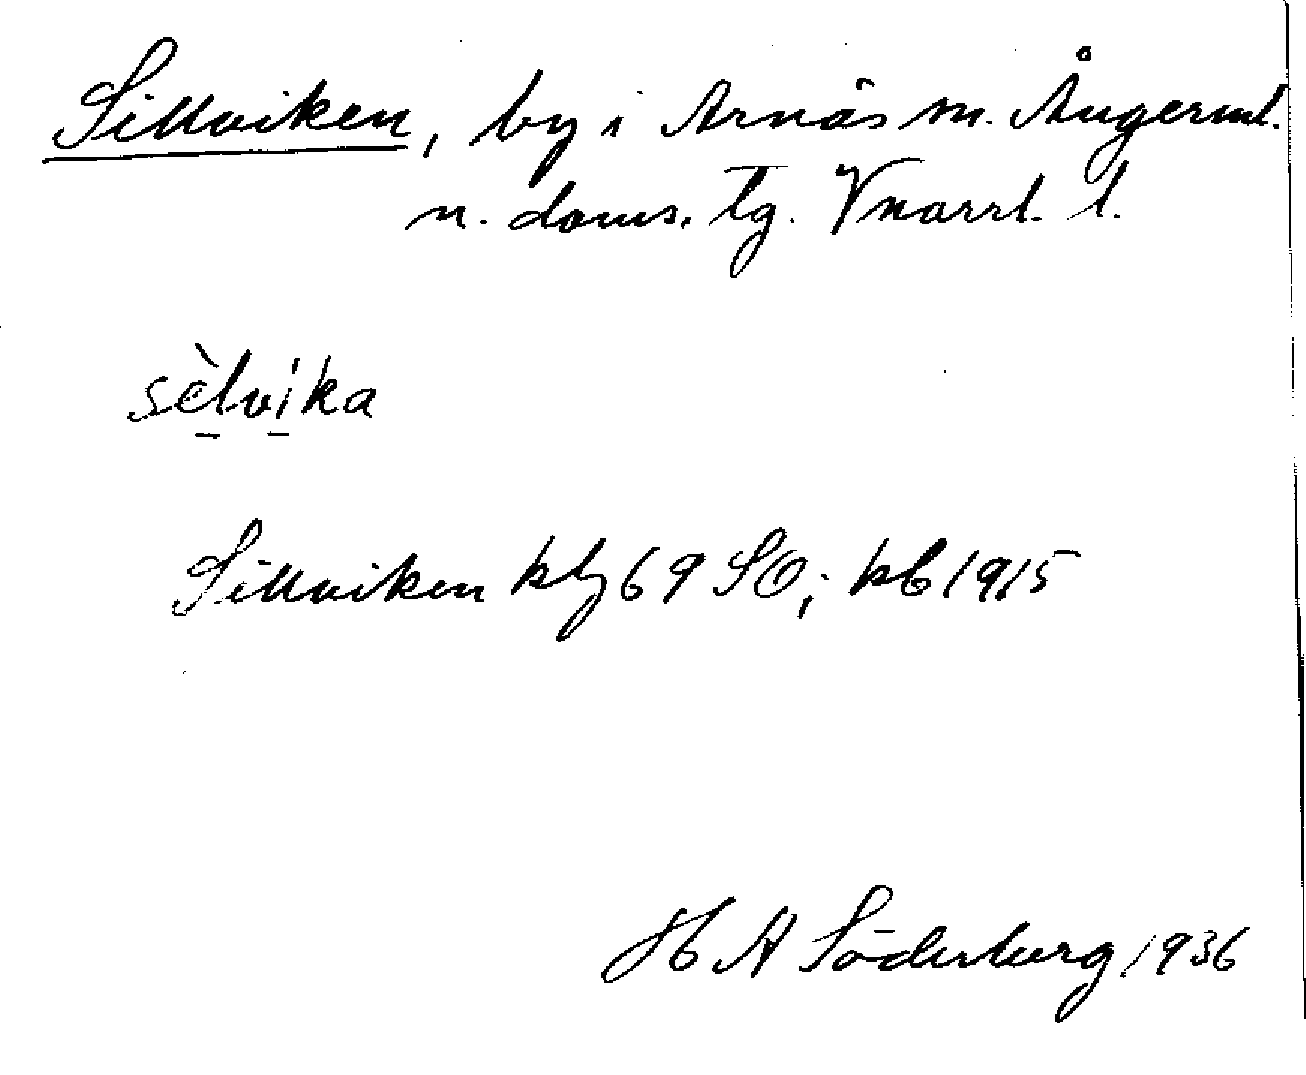 Sillviken, by i Arnäs sn. Ångerml.
n. doms. tg. Vnorrl. l.
sèlvika
Sillviken kbg 69 SO; kb 1915
H A Söderberg 1936